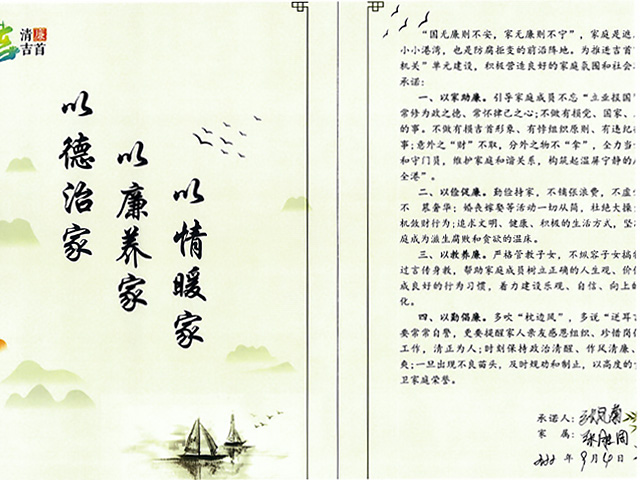 清廉
吉首
以德治家
以廉养家
以情暖家
“国无廉则不安，家无廉则不宁”，家庭是遮
小小港湾，也是防腐拒变的前沿阵地。为推进吉首
机关”单元建设，积极营造良好的家庭氛围和社会
承诺：
一、以家助廉。引导家庭成员不忘“立业报国”
常修为政之德、常怀律己之心；不做有损党、国家、
的事。不做有损吉首形象、有悖组织原则、有违纪
事；意外之“财”不取，分外之物不“拿”，全力当
和守门员，维护家庭和谐关系，构筑起温屏宁静的
全港”。
二、以俭促廉。勤俭持家，不铺张浪费，不虚
不 慕奢华；婚丧嫁娶等活动一切从简，杜绝大操
机敛财行为；追求文明、健康、积极的生活方式，坚
庭成为滋生腐败和贪欲的温床。
三、以教养廉。严格管教子女，不纵容子女搞
过言传身教，帮助家庭成员树立正确的人生观、价
成良好的行为习惯，着力建设乐观、自信、向上的
化。
四、以勤倡廉。多吹“枕边风”，多说“逆耳
要常常自警，更要提醒家人亲友感恩组织、珍惜岗
工作，清正为人；时刻保持政治清醒、作风清廉、
爽；一旦出现不良苗头，及时规劝和制止，以高度的
卫家庭荣誉。
承诺人：
家 属：
年 9 月 4 日